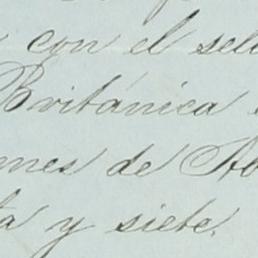 con el sell
Británica
nes de Ab
ta y siete.